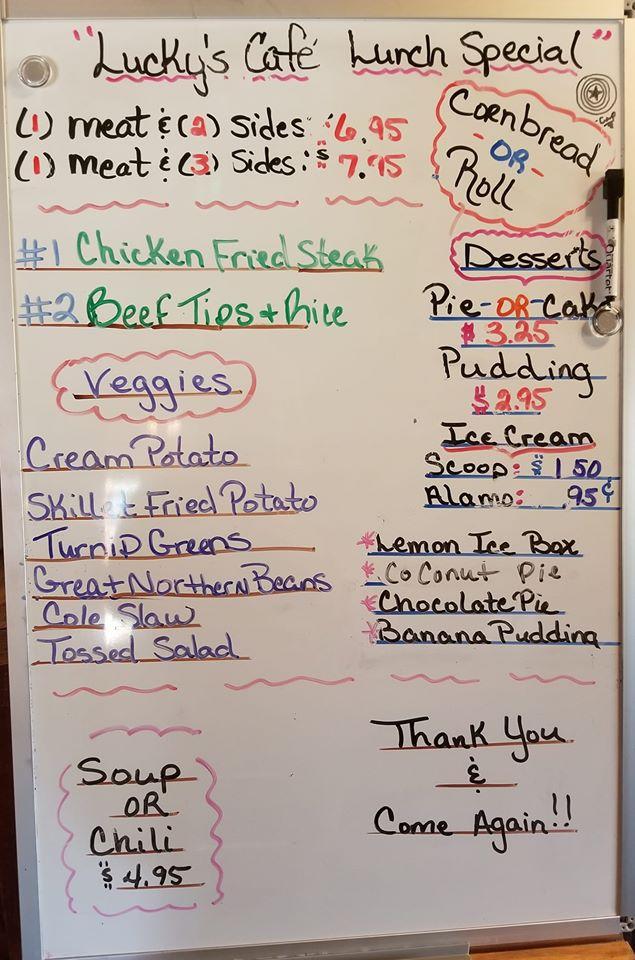 "Lucky's Café Lunch Special"
(1) meat & (2) Sides: $6.95
(1) meat & (3) Sides: $7.95
Cornbread
-OR-
Roll
#1 Chicken Fried Steak
#2 Beef Tips + Rice
Veggies
Cream Potato
Skillet Fried Potato
Turnip Greens
Great Northern Beans
Cole Slaw
Tossed Salad
Desserts
Pie-OR-Cake
$3.25
Pudding
$2.95
Ice Cream
Scoop: $1 50
Alamo: .95¢
*Lemon Ice Box
*Coconut Pie
*Chocolate Pie
*Banana Pudding
Soup
OR
Chili
$4.95
Thank You
&
Come Again!!
Quartet